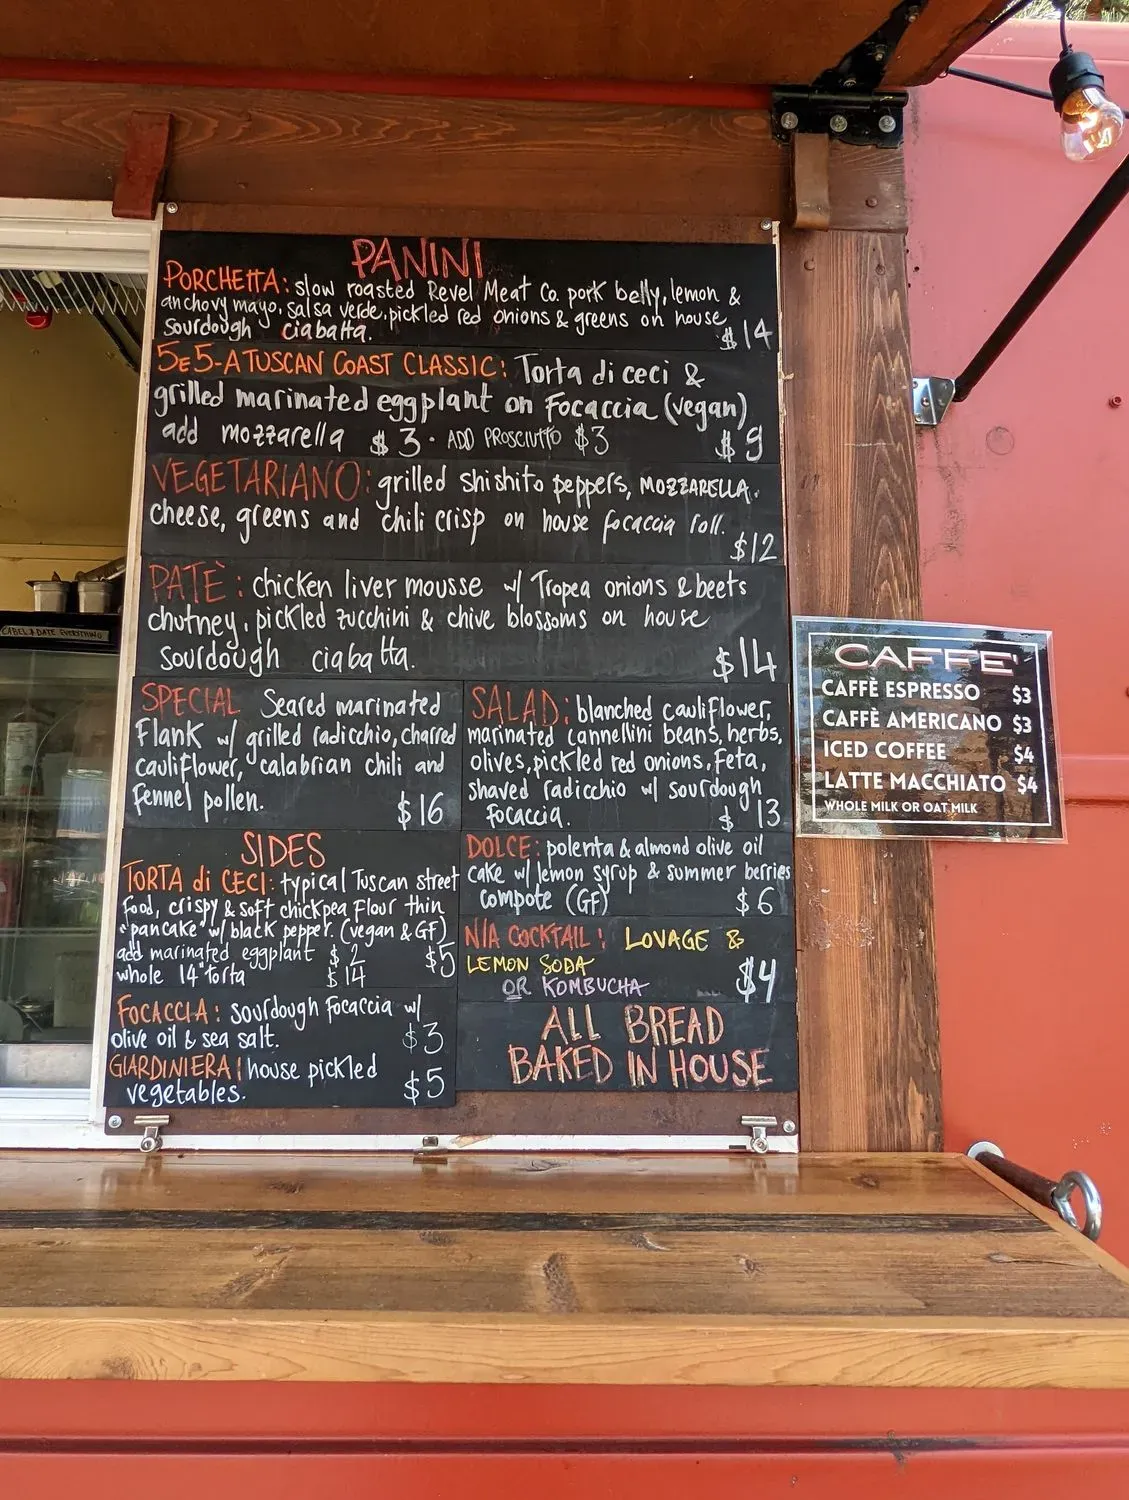 PANINI
PORCHETTA: slow roasted Revel Meat Co. pork belly, lemon &
anchovy mayo, salsa verde, pickled red onions & greens on house
sourdough ciabatta. $14
5E5-A TUSCAN COAST CLASSIC: Torta di ceci &
grilled marinated eggplant on Focaccia (vegan)
add mozzarella $3 · ADD PROSCIUTTO $3 $9
VEGETARIANO: grilled shishito peppers, MOZZARELLA.
cheese, greens and chili crisp on house focaccia roll.
$12
PATÈ: chicken liver mousse w/ Tropea onions & beets
chutney, pickled zucchini & chive blossoms on house
sourdough ciabatta. $14
SPECIAL Seared marinated
Flank w/ grilled radicchio, charred
cauliflower, calabrian chili and
fennel pollen. $16
SALAD: blanched cauliflower,
marinated cannellini beans, herbs,
olives, pickled red onions, Feta,
shaved radicchio w/ sourdough
focaccia. $13
SIDES
TORTA di CECI: typical Tuscan street
food, crispy & soft chickpea flour thin
"pancake" w/ black pepper. (vegan & GF)
add marinated eggplant $2 $5
whole 14" torta $14
FOCACCIA: sourdough focaccia w/
olive oil & sea salt. $3
GIARDINIERA| house pickled
vegetables. $5
DOLCE: polenta & almond olive oil
cake w/ lemon syrup & summer berries
compote (GF) $6
N/A COCKTAIL: LOVAGE &
LEMON SODA
OR KOMBUCHA $4
ALL BREAD
BAKED IN HOUSE
CAFFE'
CAFFÈ ESPRESSO $3
CAFFÈ AMERICANO $3
ICED COFFEE $4
LATTE MACCHIATO $4
WHOLE MILK OR OAT MILK
LABEL & DATE EVERYTHING